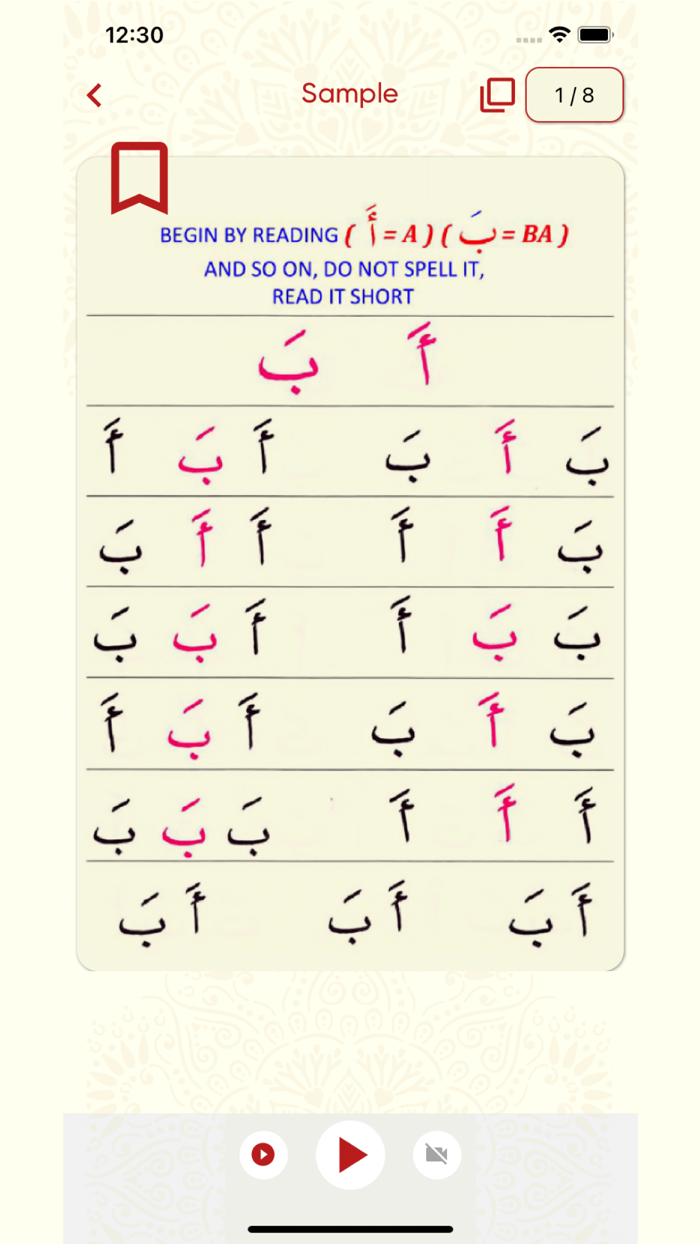 12:30
Sample
1 / 8
BEGIN BY READING ( أَ = A ) ( بَ = BA )
AND SO ON, DO NOT SPELL IT,
READ IT SHORT
أَ بَ
بَ أَ بَ أَ بَ أَ
بَ أَ أَ أَ أَ بَ
بَ بَ أَ أَ بَ بَ
بَ أَ بَ أَ بَ أَ
أَ أَ أَ بَ بَ بَ
أَ بَ أَ بَ أَ بَ